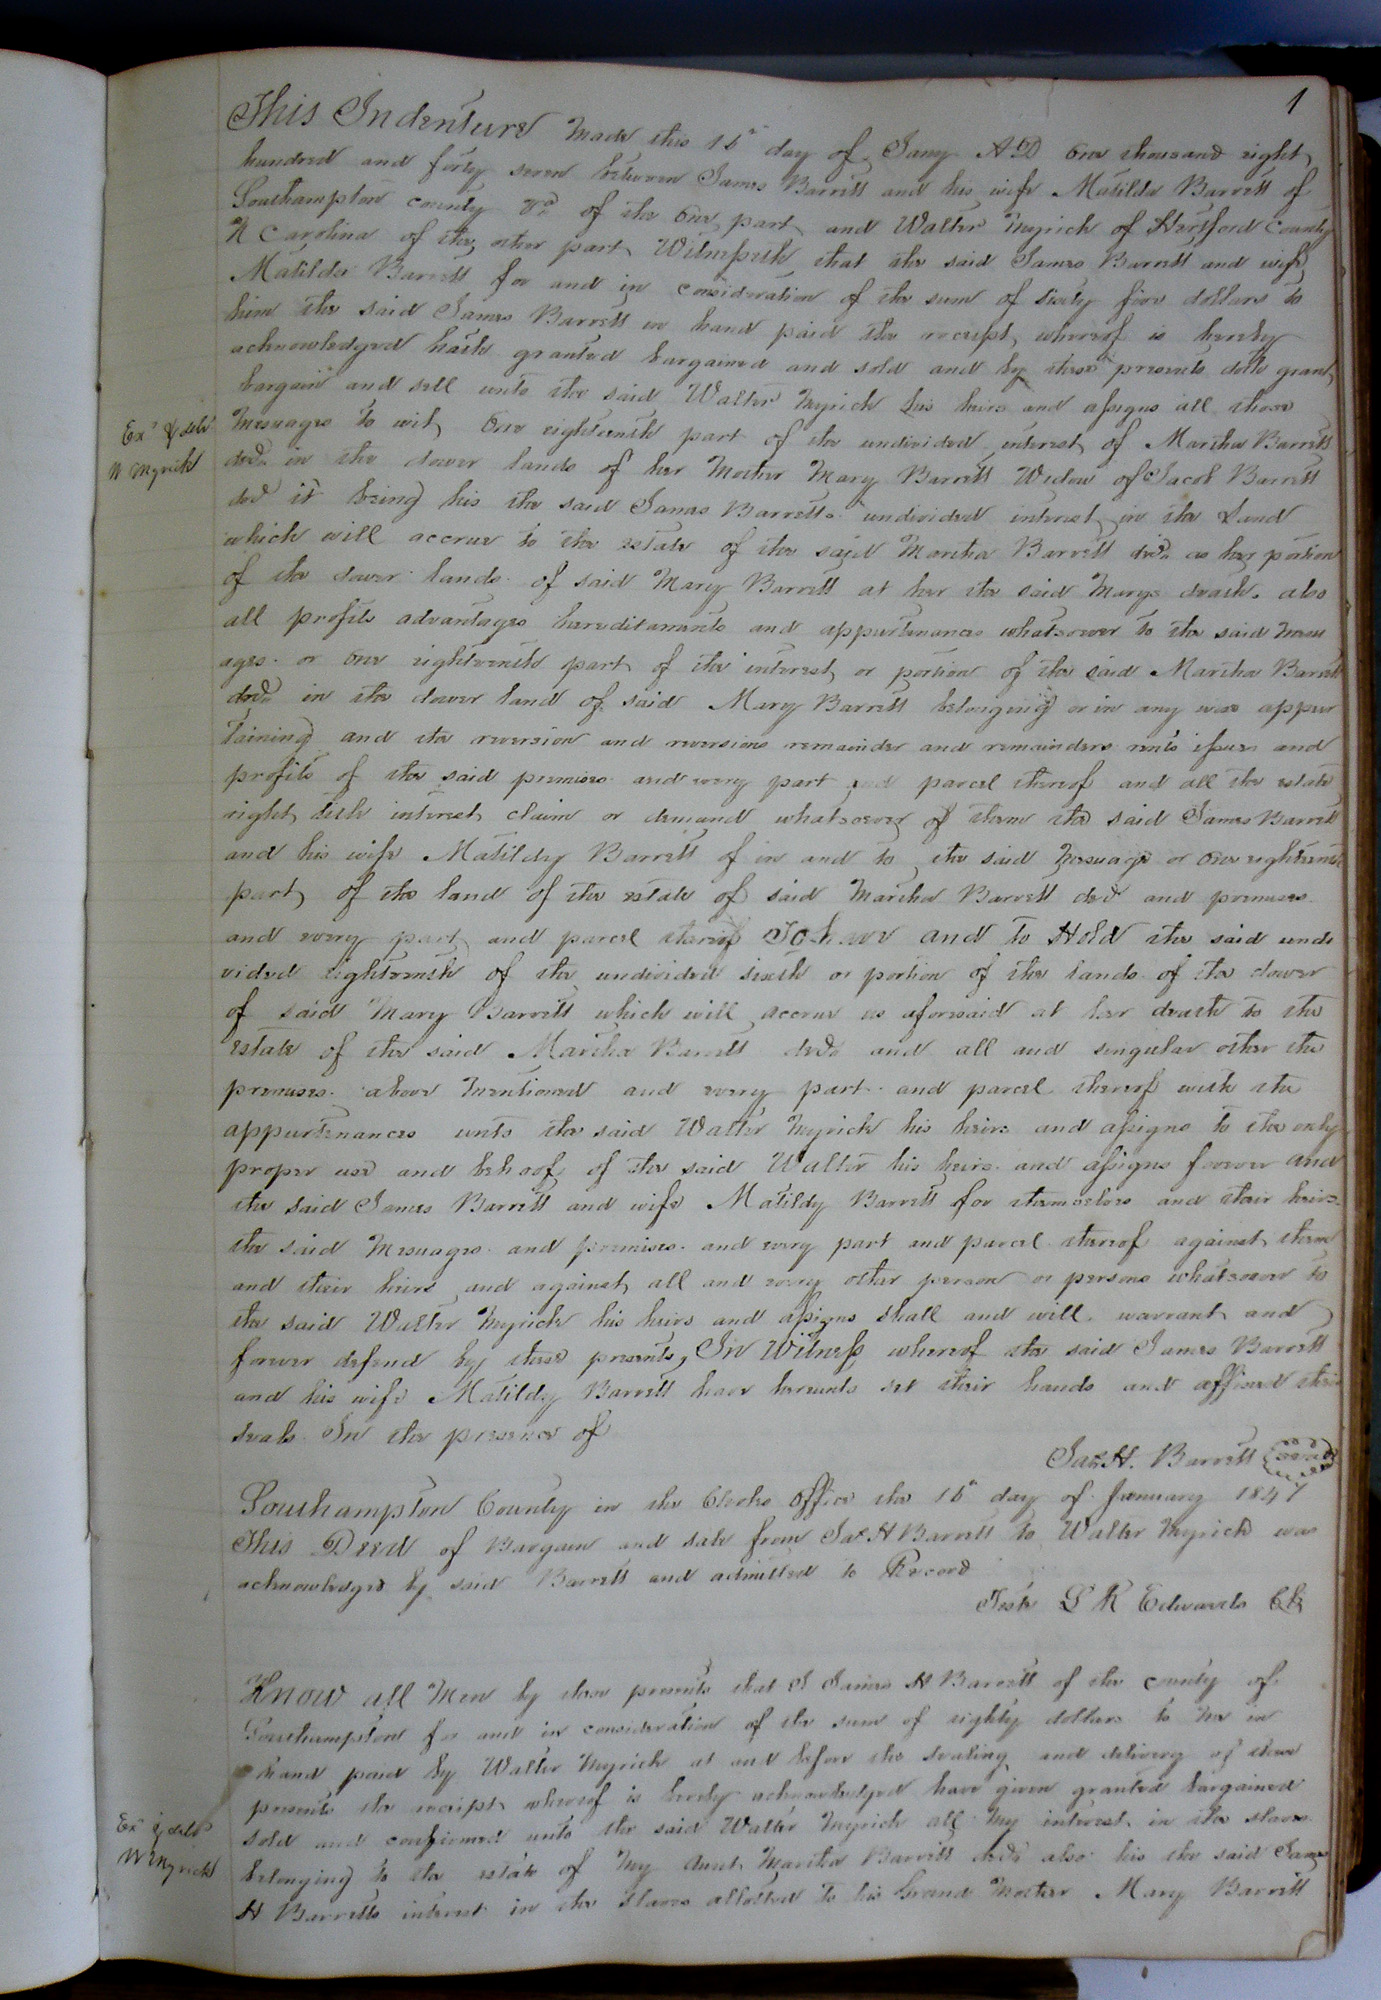 1
This Indenture Made this 16th day of Jany AD One thousand eight
hundred and forty seven between James Barrett and his wife Matilda Barrett of
Southampton county Va of the One part and Walter Myrick of Hertford County
N Carolina of the other part Witnesseth that the said James Barrett and wife
Matilda Barrett for and in consideration of the sum of sixty five dollars to
him the said James Barrett in hand paid the receipt whereof is hereby
acknowledged hath granted bargained and sold and by these presents doth grant
bargain and sell unto the said Walter Myrick his heirs and assigns all those
Ex & deld
W Myrick
Messuages to wit, One eighteenth part of the undivided interest of Martha Barrett
decd in the dower lands of her Mother Mary Barrett Widow of Jacob Barrett
decd it being his the said James Barretts undivided interest in the Land
which will accrue to the estate of the said Martha Barrett decd as her portion
of the dower lands of said Mary Barrett at her the said Marys death. also
all profits advantages hereditaments and appurtenances whatsoever to the said messu
ages or one eighteenth part of the interest or portion of the said Martha Barrett
decd in the dower land of said Mary Barrett belonging or in any wise apper
taining and the reversion and reversions remainder and remainders rents issues and
profits of the said premises and every part and parcel thereof and all the estate
right title interest claim or demand whatsoever of them the said James Barrett
and his wife Matildy Barrett of in and to the said Messuage or One eighteenth
part of the land of the estate of said Martha Barrett decd and premises
and every part and parcel thereof To have and to Hold the said undi
vided eighteenth of the undivided sixth or portion of the lands of the dower
of said Mary Barrett which will accrue as aforesaid at her death to the
estate of the said Martha Barrett decd and all and singular other the
premises above mentioned and every part and parcel thereof with the
appurtenances unto the said Walter Myrick his heirs and assigns to the only
proper use and behoof of the said Walter his heirs and assigns forever and
the said James Barrett and wife Matildy Barrett for themselves and their heirs
the said Messuages and premises and every part and parcel thereof against them
and their heirs and against all and every other person or persons whatsoever to
the said Walter Myrick his heirs and assigns shall and will warrant and
forever defend by these presents, In Witness whereof the said James Barrett
and his wife Matildy Barrett have hereunto set their hands and affixed their
seals In the presence of
Jas H. Barrett seal
Southampton County in the Clerks Office the 16th day of January 1847
This Deed of Bargain and sale from Jas H Barrett to Walter Myrick was
acknowledged by said Barrett and admitted to Record
Teste L R Edwards Clk
Know all Men by these presents that I James H Barrett of the county of
Southampton for and in consideration of the sum of eighty dollars to me in
hand paid by Walter Myrick at and before the sealing and delivery of these
presents the receipt whereof is hereby acknowledged have given granted bargained
Ex & deld
W Myrick
sold and confirmed unto the said Walter Myrick all My interest in the slaves
belonging to the estate of My Aunt Martha Barrett decd also his the said James
H Barretts interest in the slaves allotted to his Grand Mother Mary Barrett